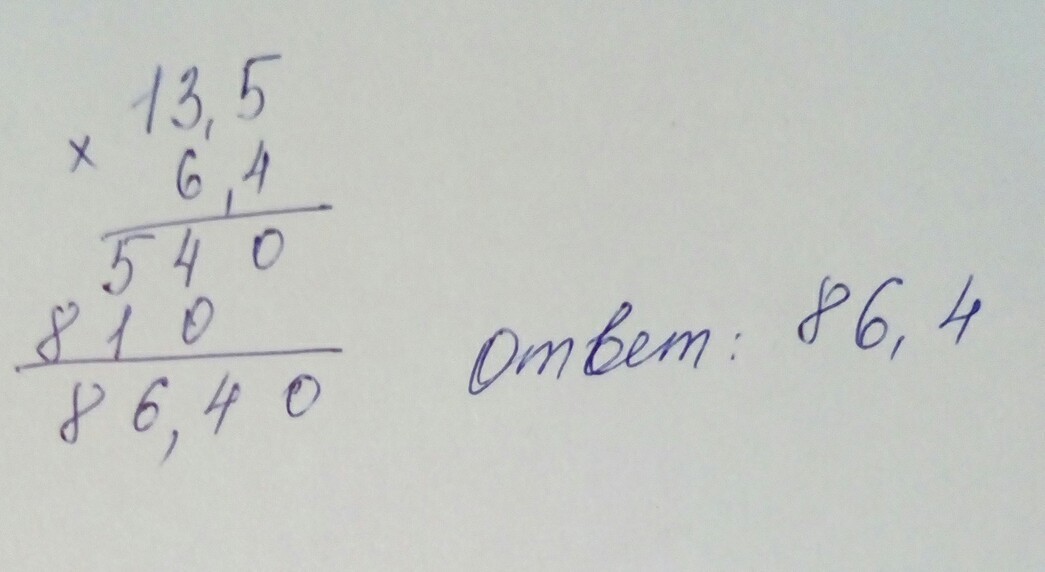 13,5
× 6,4
540
810
86,40
Ответ: 86,4